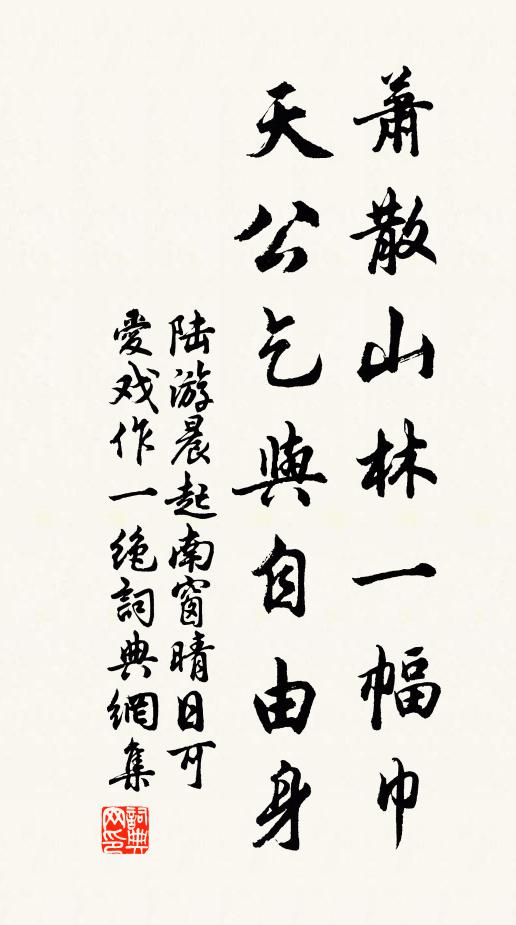 蕭散山林一幅巾
天公乞與自由身
陆游晨起南窗晴日可
愛戏作一绝詞典網集
詞典网印